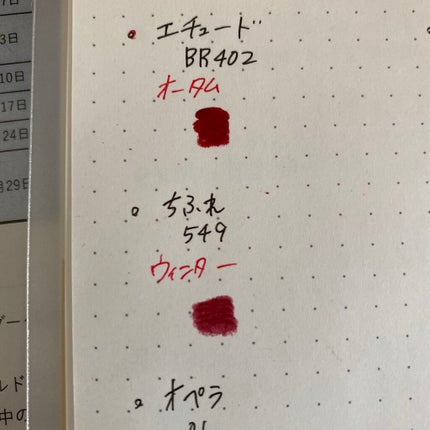 エチュード
BR402
オータム
ちふれ
549
ウィンター
オペラ
3日
10日
17日
24日
月29日
ルド
中の